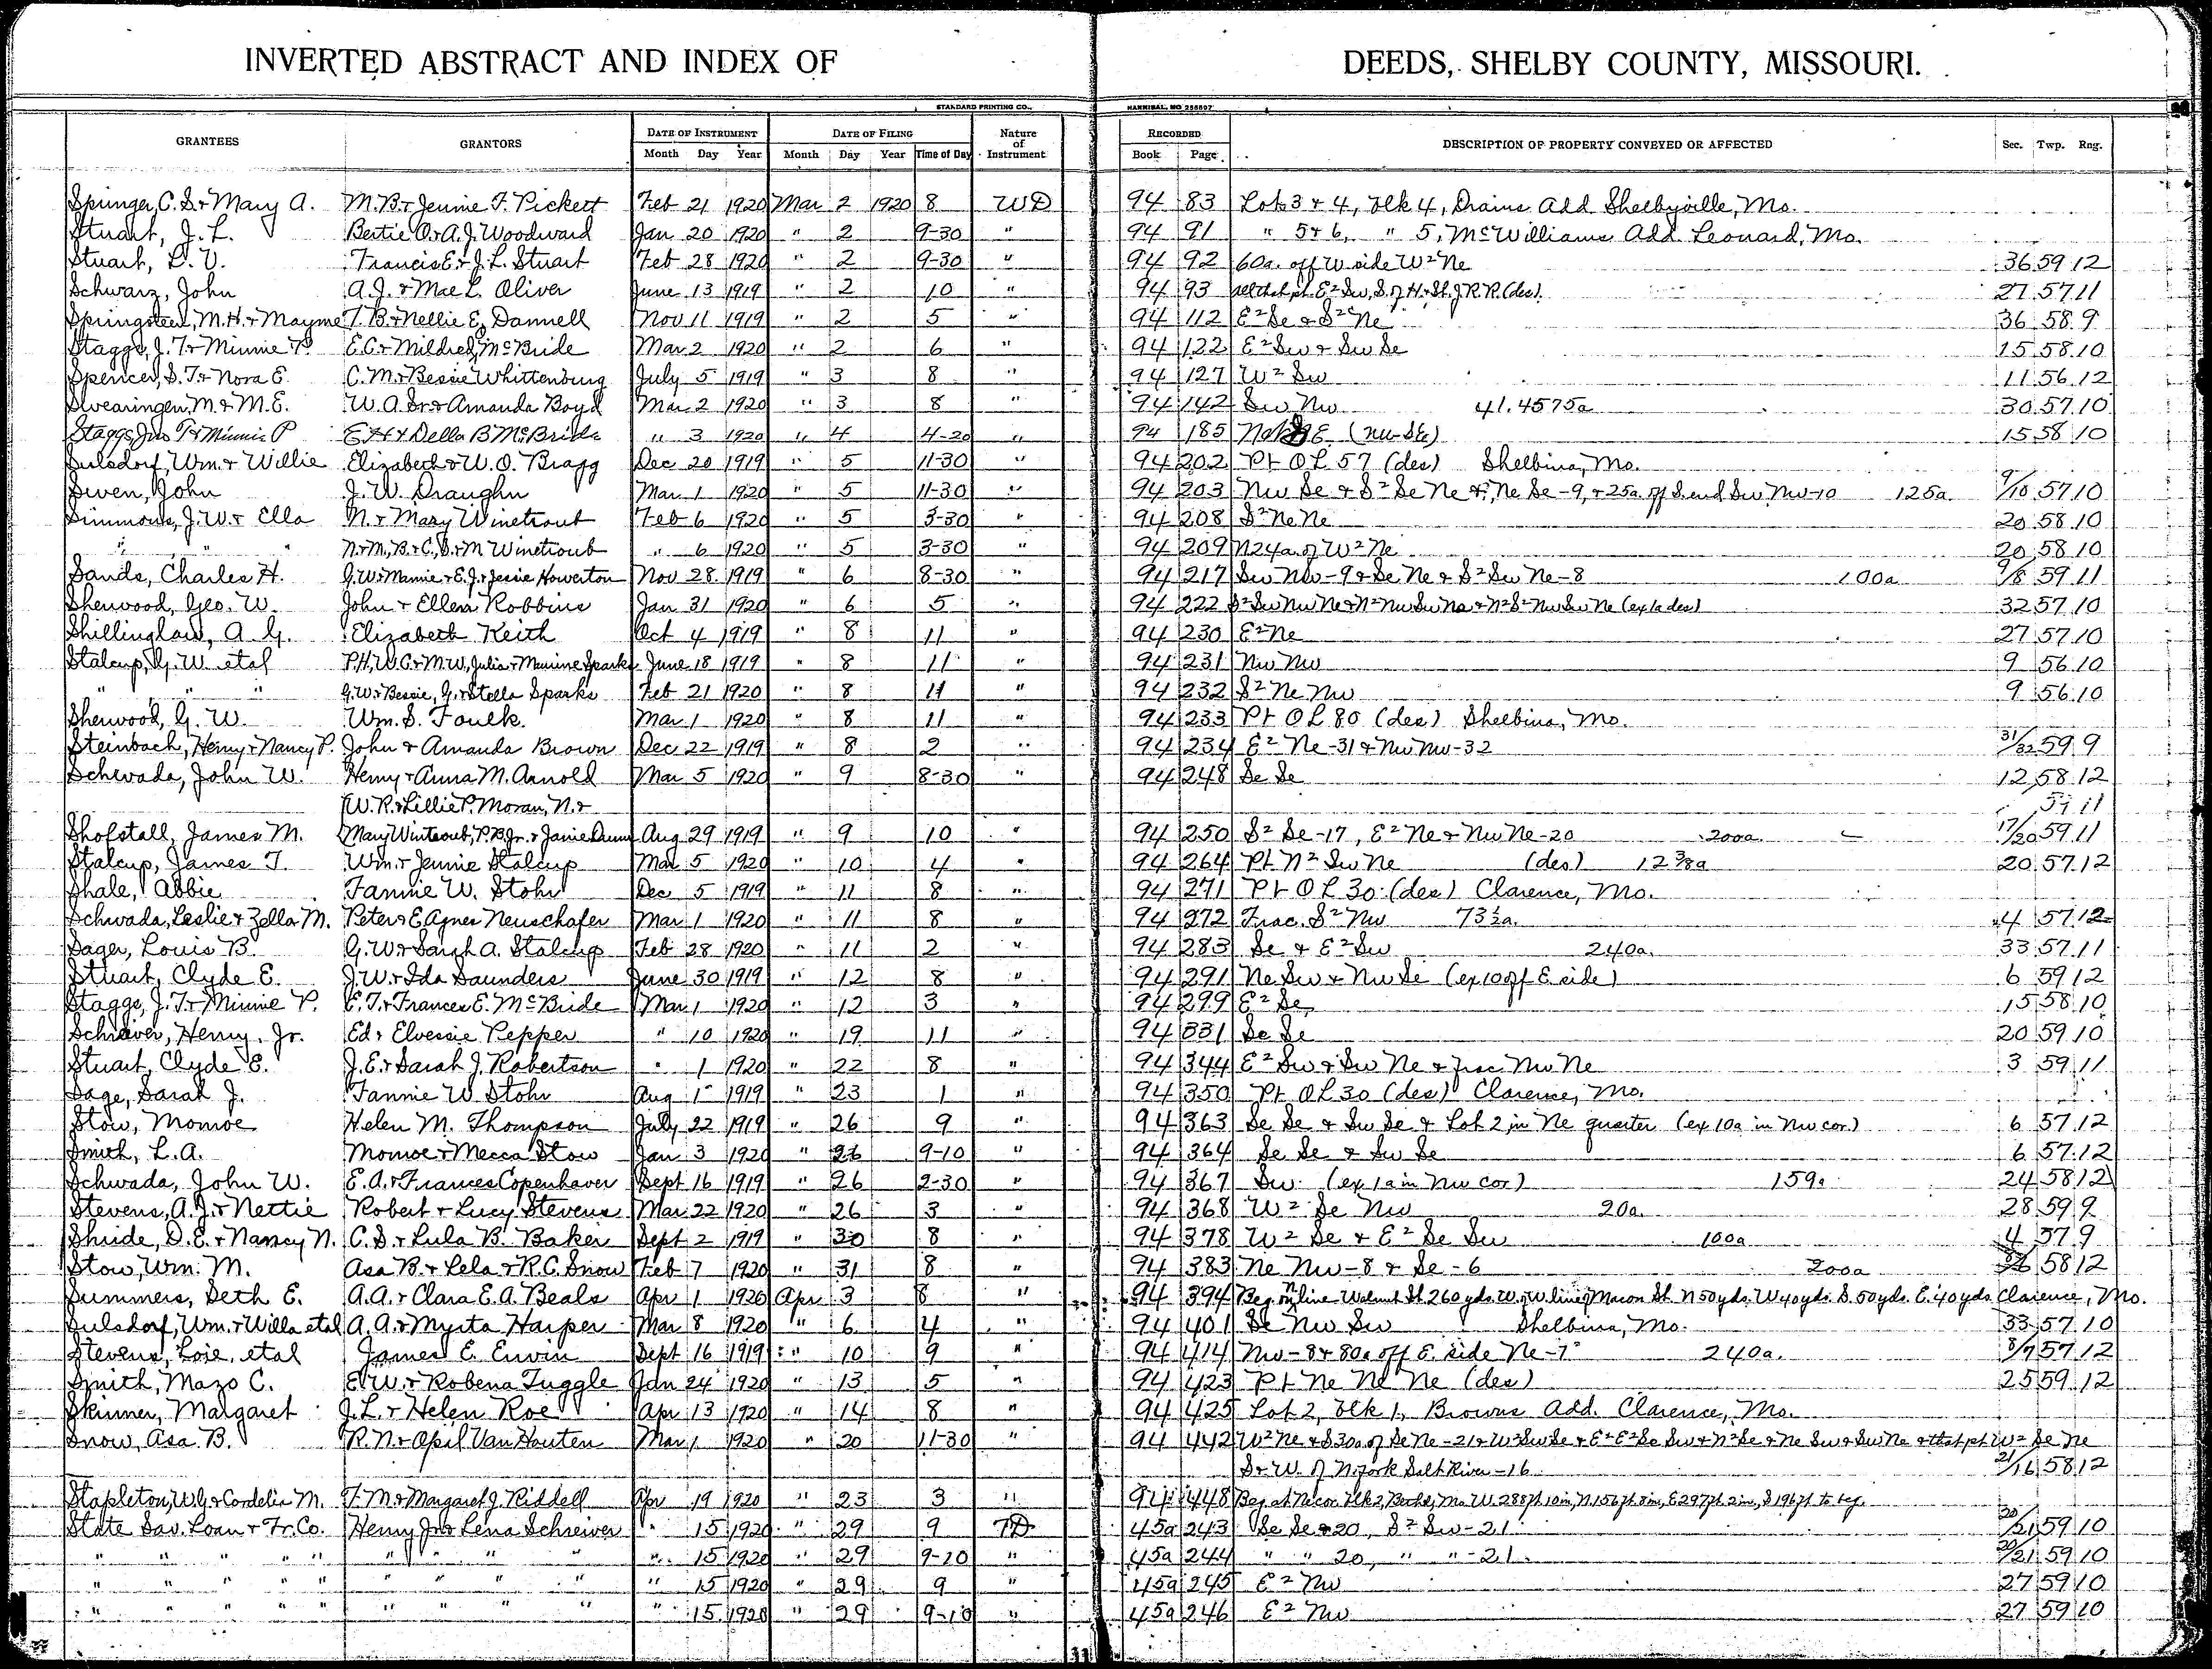 INVERTED ABSTRACT AND INDEX OF DEEDS, SHELBY COUNTY, MISSOURI.
STANDARD PRINTING CO., HANNIBAL, MO 256807
GRANTEES GRANTORS DATE OF INSTRUMENT DATE OF FILING Nature of Instrument RECORDED DESCRIPTION OF PROPERTY CONVEYED OR AFFECTED Sec. Twp. Rng.
Month Day Year Month Day Year Time of Day Book Page
Springer, C. S. + Mary A. M. B. + Jennie F. Pickett Feb 21 1920 Mar 2 1920 8 WD 94 83 Lots 3 + 4, Blk 4, Drains Add Shelbyville, Mo.
Stuart, J. L. Bertie O. + A. J. Woodward Jan 20 1920 " 2 9-30 " 94 91 " 5 + 6, " 5, McWilliams Add. Leonard, Mo.
Stuart, D. V. Francis E. + J. L. Stuart Feb 28 1920 " 2 9-30 " 94 92 60a. off W side W² Ne 36 59 12
Schwarz, John A. J. + Mae L. Oliver June 13 1919 " 2 10 " 94 93 all that pt. E² Sw, S. of H. + St. J. R. R. (des). 27 57 11
Springsteen, M. H. + Mayme T. B. + Nellie E. Dannell Nov 11 1919 " 2 5 " 94 112 E² Se + S² Ne 36 58 9
Staggs, J. T. + Minnie P. E. C. + Mildred McBride Mar 2 1920 " 2 6 " 94 122 E² Sw + Sw Se 15 58 10
Spencer, S. T. + Nora E. C. M. + Bessie Whittenburg July 5 1919 " 3 8 " 94 127 W² Sw 11 56 12
Swearingen, M. + M. E. W. A. Sr. + Amanda Boyd Mar 2 1920 " 3 8 " 94 142 Sw Nw 41.4575a 30 57 10
Staggs, Jno T + Minnie P E H + Della B McBride " 3 1920 " 4 4-20 " 94 185 (NW-SE) 15 58 10
Sulsdorf, Wm. + Willie Elizabeth + W. O. Bragg Dec 20 1919 " 5 11-30 " 94 202 Pt OL 57 (des) Shelbina, Mo.
Swen, John J. W. Draughn Mar 1 1920 " 5 11-30 " 94 203 Nw Se + S² Se Ne + Ne Se - 9, + 25a. off S. end Sw Nw - 10 125a. 9/10 57 10
Simmons, J. W. + Ella N. + Mary Winetroub Feb 6 1920 " 5 3-30 " 94 208 S² Ne Ne 20 58 10
" " " N. + M., B. + C., S. + M Winetroub " 6 1920 " 5 3-30 " 94 209 N 24a. of W² Ne 20 58 10
Sands, Charles H. G. W. + Mamie + E. J. + Jessie Howerton Nov 28 1919 " 6 8-30 " 94 217 Sw Nw - 9 + Se Ne + S² Sw Ne - 8 100a 9/8 59 11
Sherwood, Geo. W. John + Ellen Robbins Jan 31 1920 " 6 5 " 94 222 S² Sw Nw Ne + N² Nw Sw Ne + N² S² Nw Sw Ne (ex 1a des) 32 57 10
Shillinglaw, A. G. Elizabeth Keith Oct 4 1919 " 8 11 " 94 230 E² Ne 27 57 10
Stalcup, G. W. etal P. H., W. C. + M. W., Julia + Maurine Sparks June 18 1919 " 8 11 " 94 231 Nw Nw 9 56 10
" " " G. W. + Bessie, G. + Stella Sparks Feb 21 1920 " 8 11 " 94 232 S² Ne Nw 9 56 10
Sherwood, G. W. Wm. S. Foulk. Mar 1 1920 " 8 11 " 94 233 Pt OL 80 (des) Shelbina, Mo.
Steinbach, Henry + Nancy P. John + Amanda Brown Dec 22 1919 " 8 2 " 94 234 E² Ne - 31 + Nw Nw - 32 31/32 59 9
Schwada, John W. Henry + Anna M. Arnold Mar 5 1920 " 9 8-30 " 94 248 Se Se 12 58 12
W. R. + Lillie P. Moran, N. + 59 11
Shofstall, James M. Mary Wintroub, P. B. Jr. + Janie Dunn Aug 29 1919 " 9 10 " 94 250 S² Se - 17, E² Ne + Nw Ne - 20 200a. 17/20 59 11
Stalcup, James T. Wm. + Jennie Stalcup Mar 5 1920 " 10 4 " 94 264 Pt N² Sw Ne (des) 12 3/8a 20 57 12
Shale, Abbie Fannie W. Stohr Dec 5 1919 " 11 8 " 94 271 Pt OL 30 (des) Clarence, Mo.
Schwada, Leslie + Zella M. Peter + E Agnes Neuschafer Mar 1 1920 " 11 8 " 94 272 Frac. S² Nw 73½a. 4 57 12
Sager, Louis B. G. W. + Sarah A. Stalcup Feb 28 1920 " 11 2 " 94 283 Se + E² Sw 240a. 33 57 11
Stuart, Clyde E. J. W. + Ida Saunders June 30 1919 " 12 8 " 94 291 Ne Sw + Nw Se (ex 10 off E side) 6 59 12
Staggs, J. T. + Minnie P. E. T. + Frances E. McBride Mar 1 1920 " 12 3 " 94 299 E² Se 15 58 10
Schriever, Henry, Jr. Ed + Elvessie Pepper " 10 1920 " 19 11 " 94 331 Se Se 20 59 10
Stuart, Clyde E. J. E. + Sarah J. Robertson " 1 1920 " 22 8 " 94 344 E² Sw + Sw Ne + frac Nw Ne 3 59 11
Sage, Sarah J. Fannie W. Stohr Aug 1 1919 " 23 1 " 94 350 Pt OL 30 (des) Clarence, Mo.
Stow, Monroe Helen M. Thompson July 22 1919 " 26 9 " 94 363 Se Se + Sw Se + Lot 2 in Ne quarter (ex 10a in Nw cor.) 6 57 12
Smith, L. A. Monroe + Mecca Stow Jan 3 1920 " 26 9-10 " 94 364 Se Se + Sw Se 6 57 12
Schwada, John W. E. A. + Frances Copenhaver Sept 16 1919 " 26 2-30 " 94 367 Sw (ex 1a in Nw cor) 159a 24 58 12
Stevens, A. J. + Nettie Robert + Lucy Stevens Mar 22 1920 " 26 3 " 94 368 W² Se Nw 20a. 28 59 9
Shride, D. E. + Nancy N. C. S. + Lula B. Baker Sept 2 1919 " 30 8 " 94 378 W² Se + E² Se Sw 100a 4 57 9
Stow, Wm. M. Asa B. + Lela + R. C. Snow Feb 7 1920 " 31 8 " 94 383 Ne Nw - 8 + Se - 6 200a 58 12
Summers, Seth E. A. A. + Clara E. A. Beals Apr 1 1920 Apr 3 8 " 94 394 Beg. on N line Walnut St 260 yds. W. of W line of Macon St. N 50 yds. W 40 yds. S. 50 yds. E. 40 yds Clarence, Mo.
Sulsdorf, Wm. + Willa etal A. A. + Myrta Harper Mar 8 1920 " 6 4 " 94 401 Se Nw Sw Shelbina, Mo. 33 57 10
Stevens, Loie, etal James E. Erwin Sept 16 1919 " 10 9 " 94 414 Nw - 8 + 80a off E. side Ne - 7 240a. 8/7 57 12
Smith, Mazo C. E. W. + Robena Tuggle Jan 24 1920 " 13 5 " 94 423 Pt Ne Ne Ne (des) 25 59 12
Skinner, Margaret J. L. + Helen Roe Apr 13 1920 " 14 8 " 94 425 Lot 2, Blk 1, Browns Add. Clarence, Mo.
Snow, Asa B. R. N. + Opil Van Houten Mar 1 1920 " 20 11-30 " 94 442 W² Ne + S 30a of Se Ne - 21 + W² Sw Se + E² E² Se Sw + N² Se + Ne Sw + Sw Ne + that pt W² Se Ne
S + W. of N. fork Salt River - 16 21/16 58 12
Stapleton, W. G. + Cordelia M. T. M. + Margaret J. Riddell Apr 19 1920 " 23 3 " 94 448 Beg. at Ne cor. Blk 2, Bethel, Mo. W. 288 ft 10 in, N. 156 ft. 8 in, E 297 ft 2 in, S 196 ft to beg.
State Sav. Loan + Tr. Co. Henry Jr. + Lena Schreiver " 15 1920 " 29 9 TD 45a 243 Se Se 20, S² Sw - 21 20/21 59 10
" " " " " " " " " " 15 1920 " 29 9-10 " 45a 244 " " 20, " " - 21. 20/21 59 10
" " " " " " " " " " 15 1920 " 29 9 " 45a 245 E² Nw 27 59 10
" " " " " " " " " " 15 1920 " 29 9-10 " 45a 246 E² Nw 27 59 10